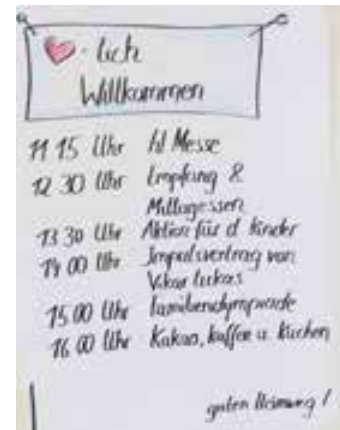 ❤-lich
Willkommen
11 15 Uhr hl Messe
12 30 Uhr Empfang &
Mittagessen
13 30 Uhr Aktion für d Kinder
14 00 Uhr Impulsvortrag von
Vikar Lukas
15 00 Uhr Familienolympiade
16 00 Uhr Kakao, Kaffee u. Kuchen
guten Heimweg!